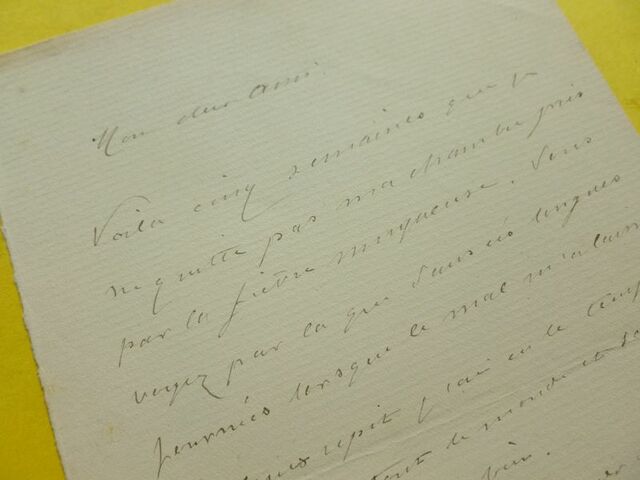 Mon cher Ami.
Voila cinq semaines que je
ne quitte pas ma chambre pris
par la fièvre muqueuse. Vous
voyez par la que dans ces longues
journées lorsque le mal m'a laissé
repit j'ai eu le temps
tout le monde et